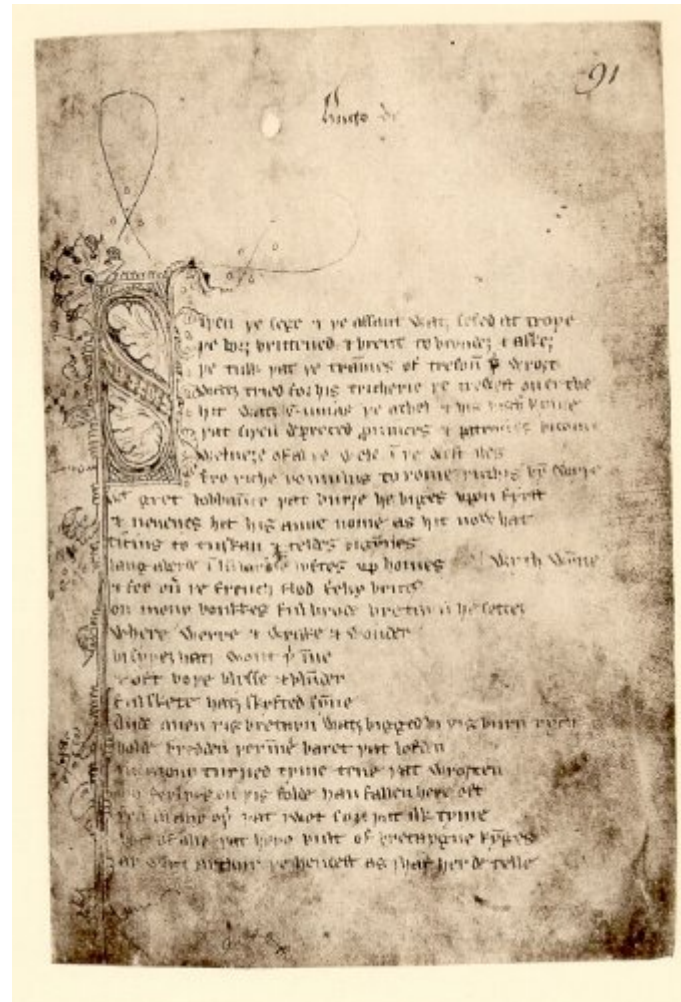 91
Hugo de
Siþen þe sege & þe assaut watz sesed at troye
þe borȝ brittened & brent to brondez & askez
þe tulk þat þe tram̄es of tresoū þ̉ wroȝt
watz tried for his tricherie þe trewest on erthe
hit watz ennias þe athel & his highe kynde
þat siþen depreced prouinces & patrounes bicome
welneȝe of al þe wele ī þe west iles
fro riche romulus to rome ricchis hym swyþe
with gret bobbaūce þat burȝe he biges vpon fyrst
& neuenes hit his aune nome as hit now hat
ticius to tuskan & teldes bigynnes
langaberde ī lumbardie lyftes vp homes wyth wȳne
& fer oủ þe french flod felix brutus
on mony bonkkes ful brode bretayn he settez
where werre & wrake & wonder
bi syþez hatz wont þ̉ īne
& oft boþe blysse & blunder
ful skete hatz skyfted sȳne
ande quen þis bretayn watz bigged bi þis burn rych
bolde bredden þ̉īne baret þat lofden
in mony turned tyme tene þat wroȝten
mo ferlyes on þis folde han fallen here oft
þen in any oþ̉ þat I wot syn þat ilk tyme
bot of alle þat here bult of bretaygne kynges
ay watz arthur þe hendest as I haf herde telle